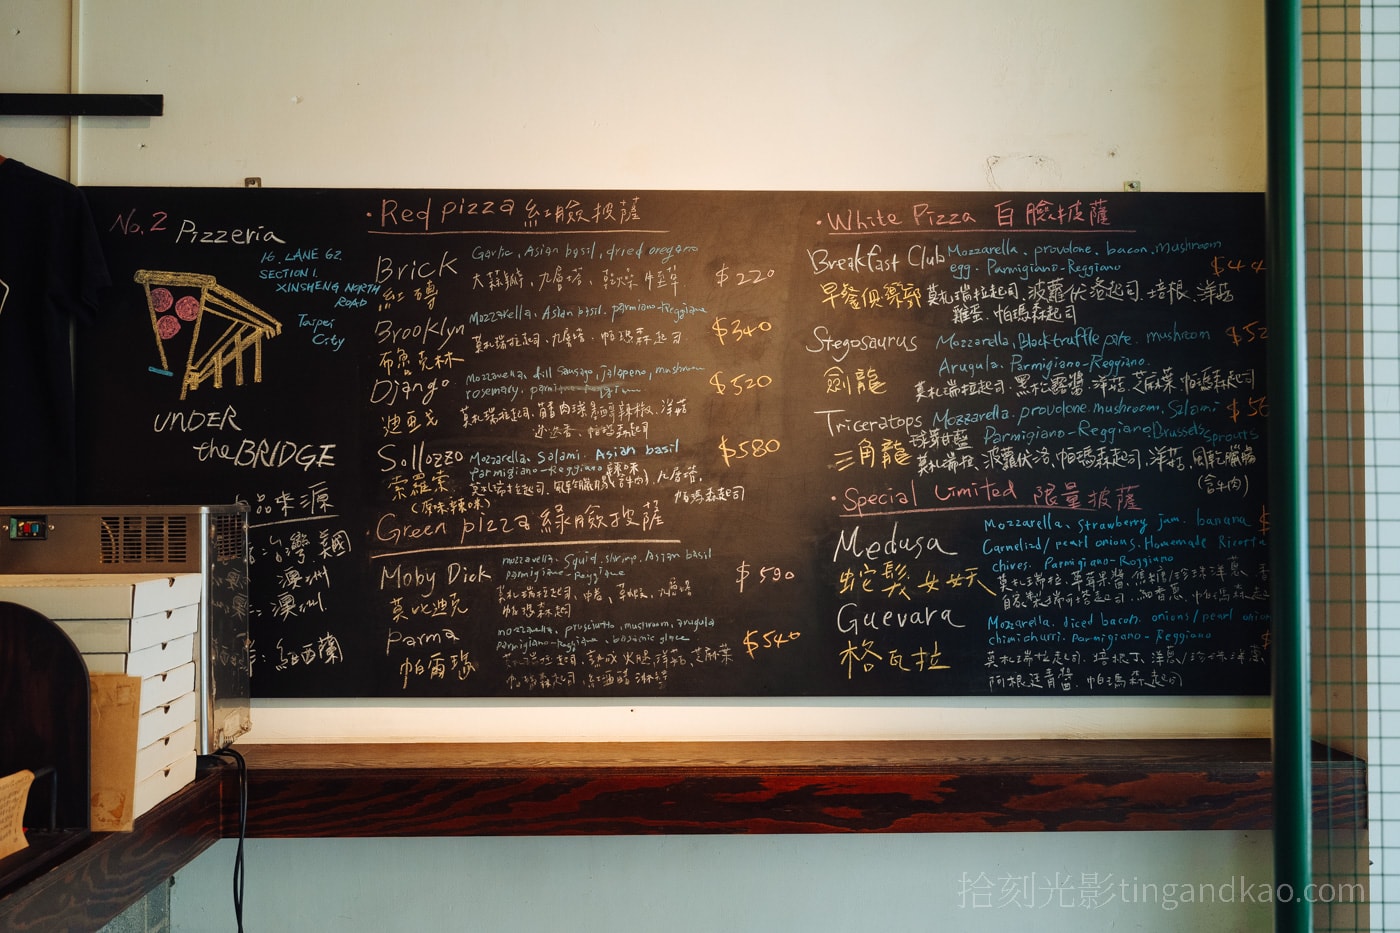 No.2 Pizzeria
16. LANE 62,
SECTION 1,
XINSHENG NORTH
ROAD
Taipei
City
UNDER
the BRIDGE
品來源
台灣 美國
澳洲
澳洲
紐西蘭
·Red pizza 紅臉披薩
Brick
紅磚
Garlic, Asian basil, dried oregano
大蒜、九層塔、乾燥牛至草
$220
Brooklyn
布魯克林
Mozzarella, Asian basil, parmiano-Reggiano
莫札瑞拉起司、九層塔、帕瑪森起司
$340
Django
迪亞戈
Mozzarella, dill sausage, jalapeno, mushroom
rosemary,
莫札瑞拉起司、辣椒、洋菇
迷迭香、帕瑪森起司
$520
Sollozzo
索羅索
(原味.辣味)
Mozzarella, Salami, Asian basil
Parmigiano-Reggiano
莫札瑞拉起司、風乾臘腸(含牛肉)、九層塔、
帕瑪森起司
$580
·Green pizza 綠臉披薩
Moby Dick
莫比迪克
mozzarella, Squid, shrimp, Asian basil
parmigiano-Reggiano
莫札瑞拉起司、中卷、草蝦、九層塔
帕瑪森起司
$590
Parma
帕爾瑪
mozzarella, prosciutto, mushroom, arugula
Parmigiano-Reggiano, balsamic glace
莫札瑞拉起司、熟成火腿、洋菇、芝麻葉
帕瑪森起司、紅酒醋淋醬
$540
·White Pizza 白臉披薩
Breakfast Club
早餐俱樂部
Mozzarella, provolone, bacon, mushroom
egg, Parmigiano-Reggiano
莫札瑞拉起司、波蘿伏洛起司、培根、洋菇
雞蛋、帕瑪森起司
$44
Stegosaurus
劍龍
Mozzarella, Black truffle pate, mushroom
Arugula, Parmigiano-Reggiano
莫札瑞拉起司、黑松露醬、洋菇、芝麻葉、帕瑪森起司
$52
Triceratops
三角龍
Mozzarella, provolone, mushroom, Salami
Parmigiano-Reggiano, Brussels sprouts
球芽甘藍
莫札瑞拉、波蘿伏洛、帕瑪森起司、洋菇、風乾臘腸
(含牛肉)
$56
·Special Limited 限量披薩
Medusa
蛇髮女妖
Mozzarella, Strawberry jam, banana
Carmelized/pearl onions, Homemade Ricotta
chives, Parmigiano-Reggiano
莫札瑞拉、草莓果醬、焦糖/珍珠洋蔥、香
自家製瑞可塔起司、細香蔥、帕瑪森起
Guevara
格瓦拉
Mozzarella, diced bacon, onions/pearl onion
chimichurri, Parmigiano-Reggiano
莫札瑞拉起司、培根丁、洋蔥/珍珠洋蔥、
阿根廷青醬、帕瑪森起司
拾刻光影tingandkao.com